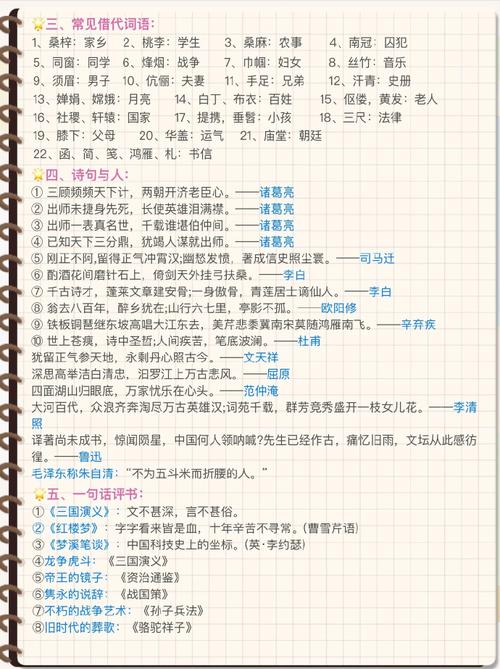 🌟三、常见借代词语：
1、桑梓：家乡 2、桃李：学生 3、桑麻：农事 4、南冠：囚犯
5、同窗：同学 6、烽烟：战争 7、巾帼：妇女 8、丝竹：音乐
9、须眉：男子 10、伉俪：夫妻 11、手足：兄弟 12、汗青：史册
13、婵娟、嫦娥：月亮 14、白丁、布衣：百姓 15、伛偻，黄发：老人
16、社稷、轩辕：国家 17、提携，垂髫：小孩 18、三尺：法律
19、膝下：父母 20、华盖：运气 21、庙堂：朝廷
22、函、简、笺、鸿雁、札：书信
🌟四、诗句与人：
① 三顾频频天下计，两朝开济老臣心。——诸葛亮
② 出师未捷身先死，长使英雄泪满襟。——诸葛亮
③ 出师一表真名世，千载谁堪伯仲间。——诸葛亮
④ 已知天下三分鼎，犹竭人谋就出师。——诸葛亮
⑤ 刚正不阿,留得正气冲霄汉;幽愁发愤，著成信史照尘寰。——司马迁
⑥ 酌酒花间磨针石上，倚剑天外挂弓扶桑。——李白
⑦ 千古诗才，蓬莱文章建安骨;一身傲骨，青莲居士谪仙人。——李白
⑧ 翁去八百年，醉乡犹在;山行六七里，亭影不孤。——欧阳修
⑨ 铁板铜琶继东坡高唱大江东去，美芹悲黍冀南宋莫随鸿雁南飞。——辛弃疾
⑩ 世上苍痍，诗中圣哲;人间疾苦，笔底波澜。——杜甫
犹留正气参天地，永剩丹心照古今。——文天祥
深思高举洁白清忠，汨罗江上万古悲风。——屈原
四面湖山归眼底，万家忧乐在心头。——范仲淹
大河百代，众浪齐奔淘尽万古英雄汉;词苑千载，群芳竞秀盛开一枝女儿花。——李清
照
译著尚未成书，惊闻陨星，中国何人领呐喊?先生已经作古，痛忆旧雨，文坛从此感彷
徨。——鲁迅
毛泽东称朱自清：“不为五斗米而折腰的人。”
🌟五、一句话评书：
①《三国演义》：文不甚深，言不甚俗。
②《红楼梦》：字字看来皆是血，十年辛苦不寻常。(曹雪芹语)
③《梦溪笔谈》：中国科技史上的坐标。(英·李约瑟)
④龙争虎斗：《三国演义》
⑤帝王的镜子：《资治通鉴》
⑥隽永的说辞：《战国策》
⑦不朽的战争艺术：《孙子兵法》
⑧旧时代的葬歌：《骆驼祥子》